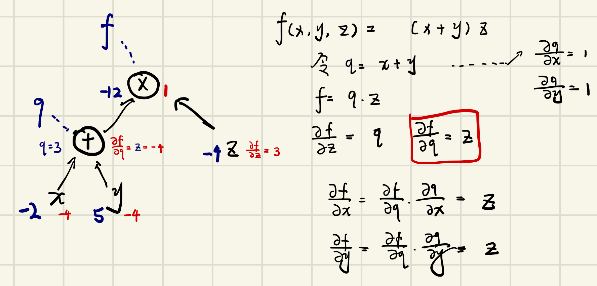 f
-12 × 1
q
q=3 + ∂f/∂q = z = -4
-4 z ∂f/∂z = 3
-2 x -4
5 y -4
f(x, y, z) = (x+y) z
令 q = x+y ------→ ∂q/∂x = 1
∂q/∂y = 1
f = q · z
∂f/∂z = q ∂f/∂q = z
∂f/∂x = ∂f/∂q · ∂q/∂x = z
∂f/∂y = ∂f/∂q · ∂q/∂y = z